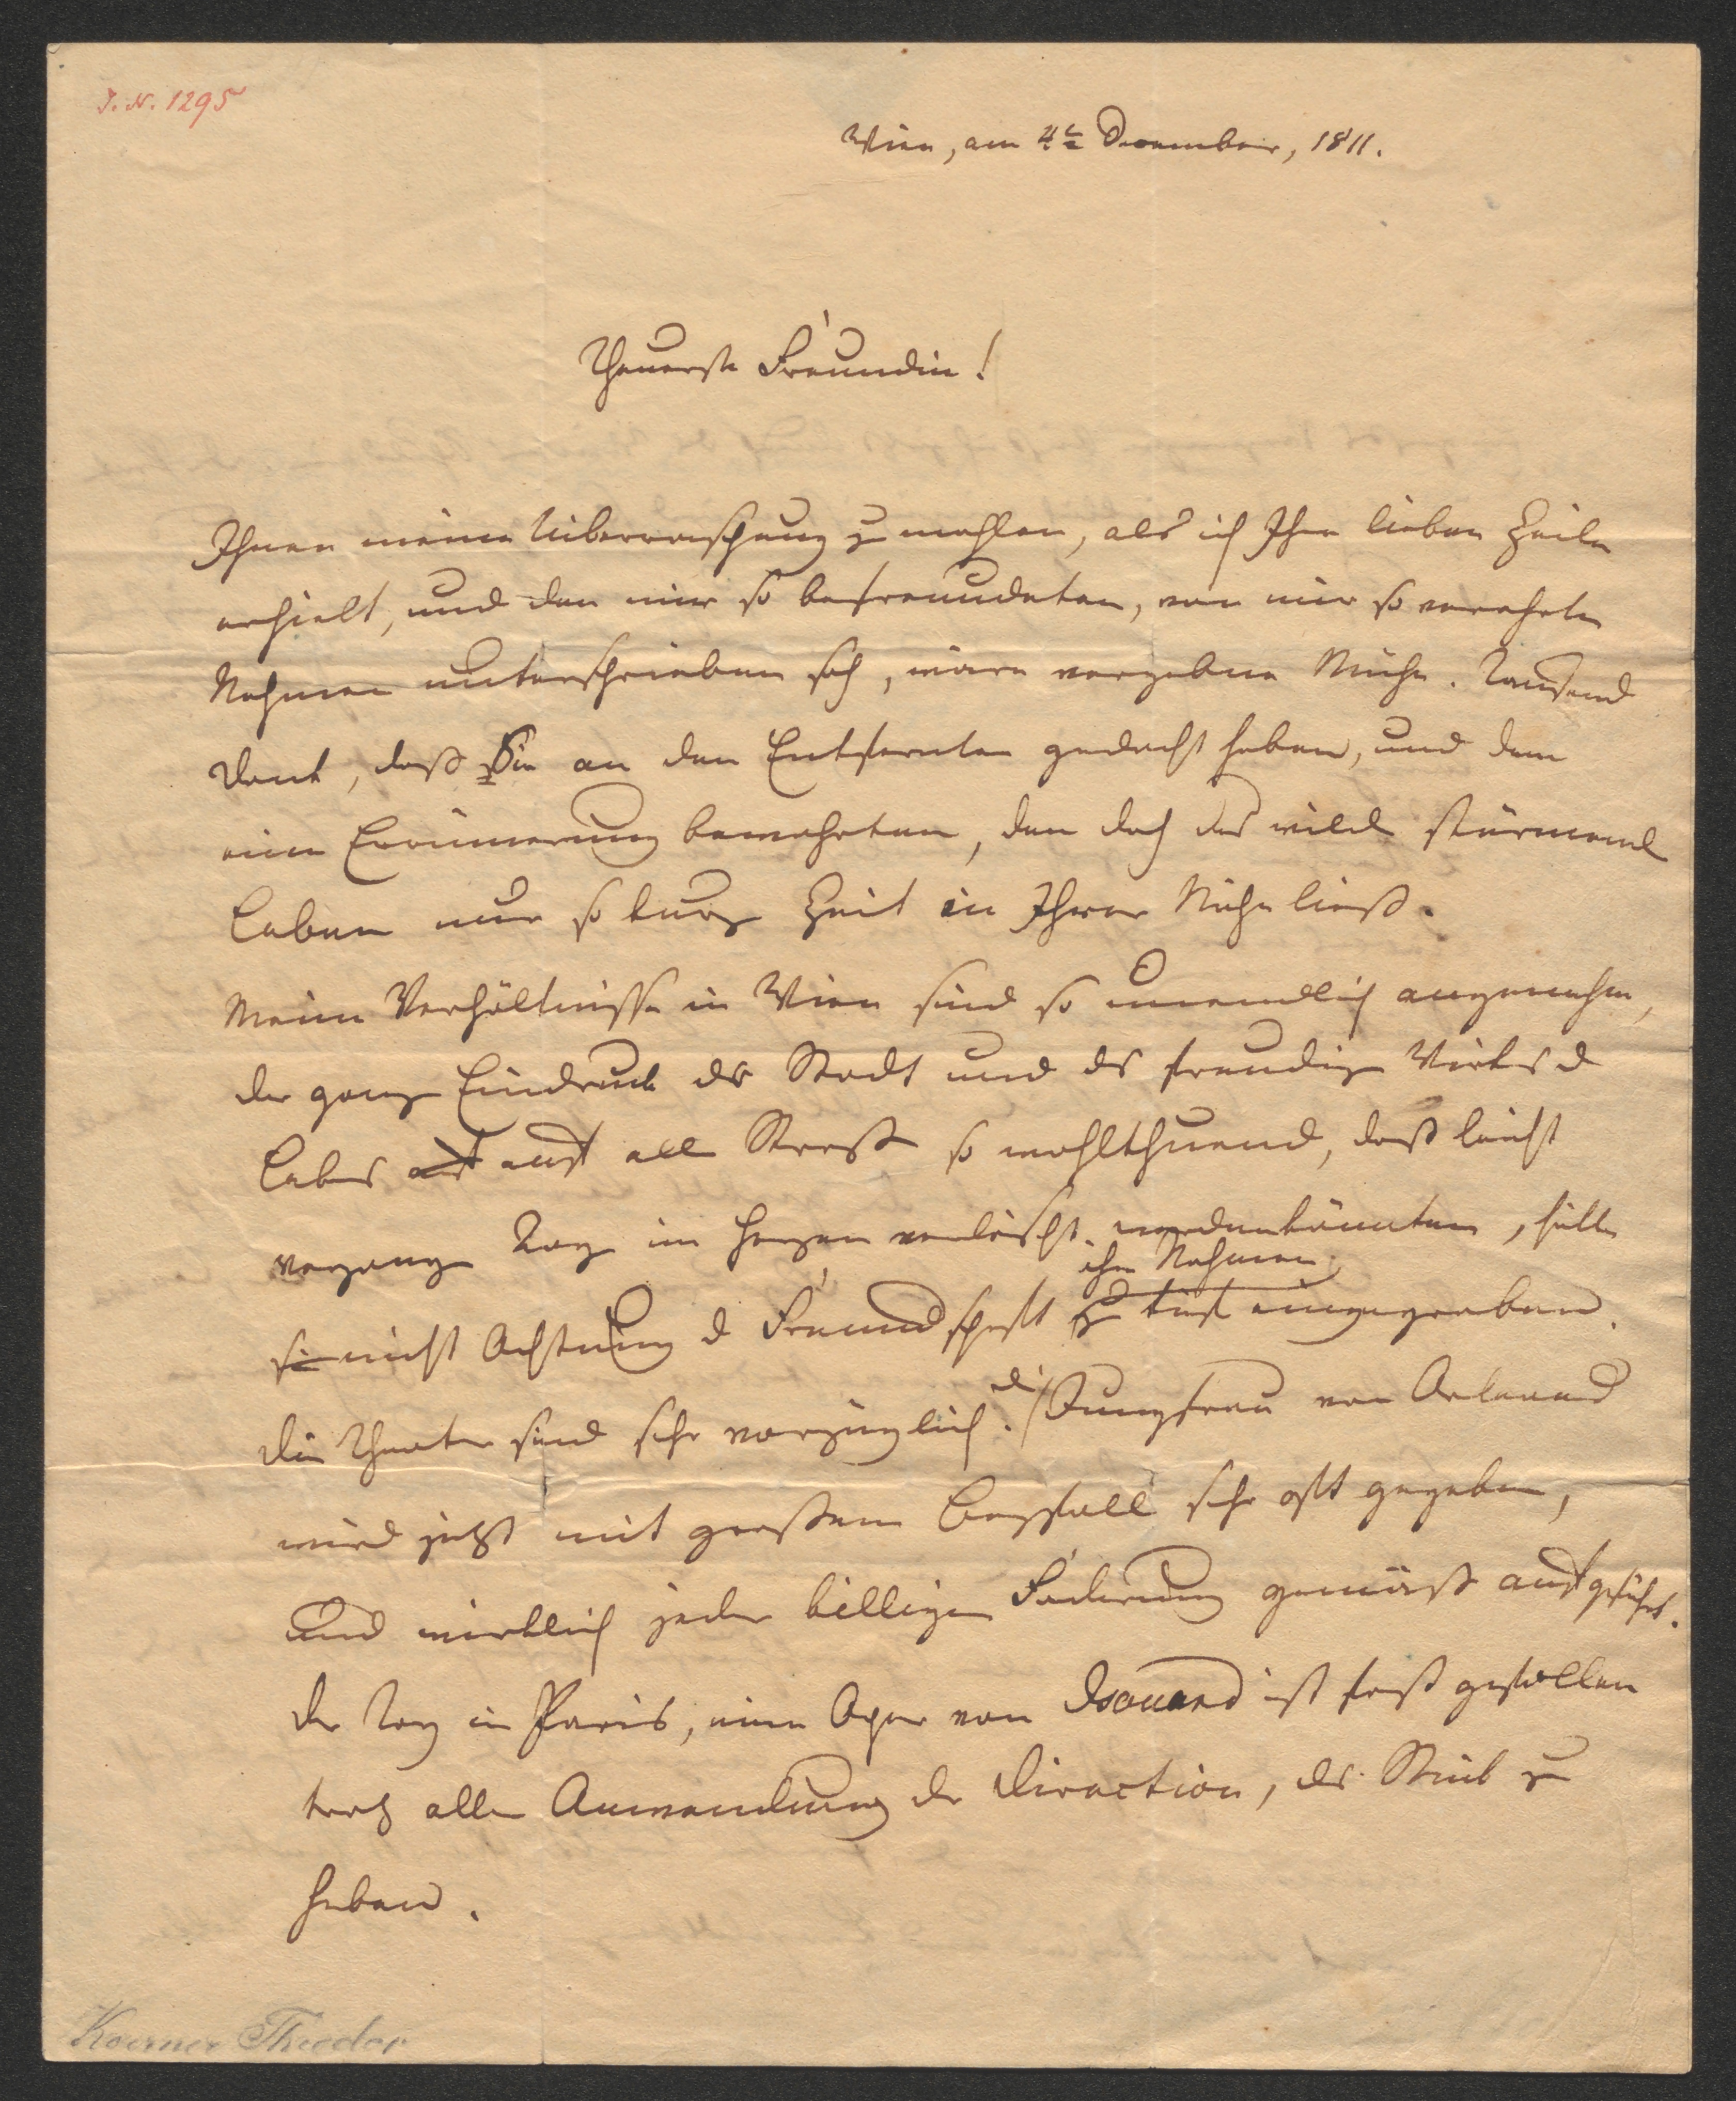 J. N. 1295
Wien, am 4t December, 1811.
Theuerste Freundin!
Ihnen meine Ueberraschung zu mahlen, als ich Ihre lieben Zeilen
erhielt, und den mir so befreundeten, von mir so verehrten
Nahmen unterschrieben sah, wäre vergebne Mühe. Tausend
Dank, daß Sie an den Entfernten gedacht haben, und dem
eine Erinnerung bewahrten, den doch das wild stürmend
Leben nur so kurze Zeit in Ihrer Nähe ließ.
Meine Verhältnisse in Wien sind so unendlich angenehm,
der ganze Eindruck der Stadt und des freudigen
Lebens auf all so wohlthuend, daß leicht
vergangne Tage im Herzen verlöscht werden könnten, hätte
ihre Nahmen
sie nicht Achtung d Freundschaft zu tief eingegraben.
Die Theater sind sehr vorzüglich. di Jungfrau von Orleans
wird jetzt mit großem Beyfall sehr oft gegeben,
und wirklich jeder billigen Foderung gemäß ausgeführt.
Der Tag in Paris, eine Oper von Isouard ist fast gefallen
trotz aller Anwendung der Direction, das Stück zu
heben.
Koerner Theodor